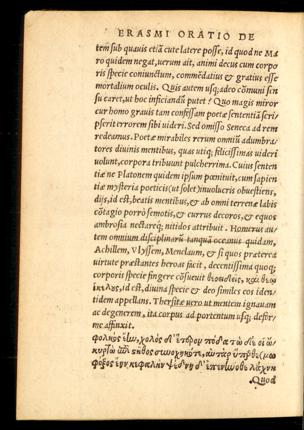 ERASMI ORATIO DE
tem sub quauis etiā cute latere posse, id quod ne Ma
ro quidem negat, uerum ait, animi decus cum corpo
ris specie coniunctum, commēdatius & gratius esse
mortalium oculis. Quis autem usq; adeo cōmuni sen
su caret, ut hoc inficiandū putet? Quo magis miror
cur homo grauis tam confessam poetæ sententiā scri
pserit errorem sibi uideri. Sed omisso Seneca ad rem
redeamus. Poetæ mirabiles rerum omniū adumbra
tores diuinis mentibus, quas utiq; felicissimas uideri
uolunt, corpora tribuunt pulcherrima. Cuius senten
tiæ ne Platonem quidem ipsum pœnituit, cum sapien
tiæ mysteria poeticis (ut solet) inuolucris obuestiens,
dijs, id est, beatis mentibus, & ab omni terrenæ labis
cōtagio porrò semotis, & currus decoros, & equos
ambrosia nectareq; nitidos attribuit. Homerus au
tem omnium disciplinarū tanquā oceanus quidam,
Achillem, Vlyssem, Menelaum, & si quos præterea
uirtute præstantes heroas facit, decentissima quoq;
corporis specie fingere cōsueuit θεοειδεῖς, καὶ θεω
κελους, id est, diuina specie & deo similes eos iden
tidem appellans. Thersitæ uero ut mentem ignauam
ac degenerem, ita corpus ad portentum usq; defor
me affinxit.
φολκὸς ἔην, χολὸς δ' ἕτερον πόδα τὼ δέ οἱ ὤ
φοξὸς ἔην κεφαλὴν ψεδνὴ δ' ἐπενήνοθε λάχνη
Quod